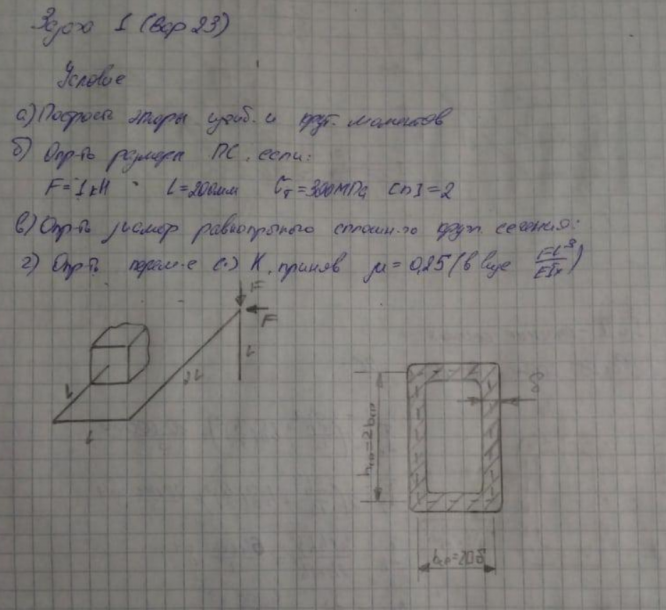 Задача 1 (Вар 23)
Условие
а) Построить эпоры изгиб. и крут. моментов
б) Опр-ть размеры ПС, если:
F = 1 кН l = 200мм σт = 300МПа [n] = 2
в) Опр-ть размер равнопрочного сплошн-го кругл сечения:
г) Опр-ть перем-е (·) K, приняв μ = 0,25 (в виде Fl³/EIx)
F
F
l
2l
l
l
δ
hср=2bср
bср=20δ